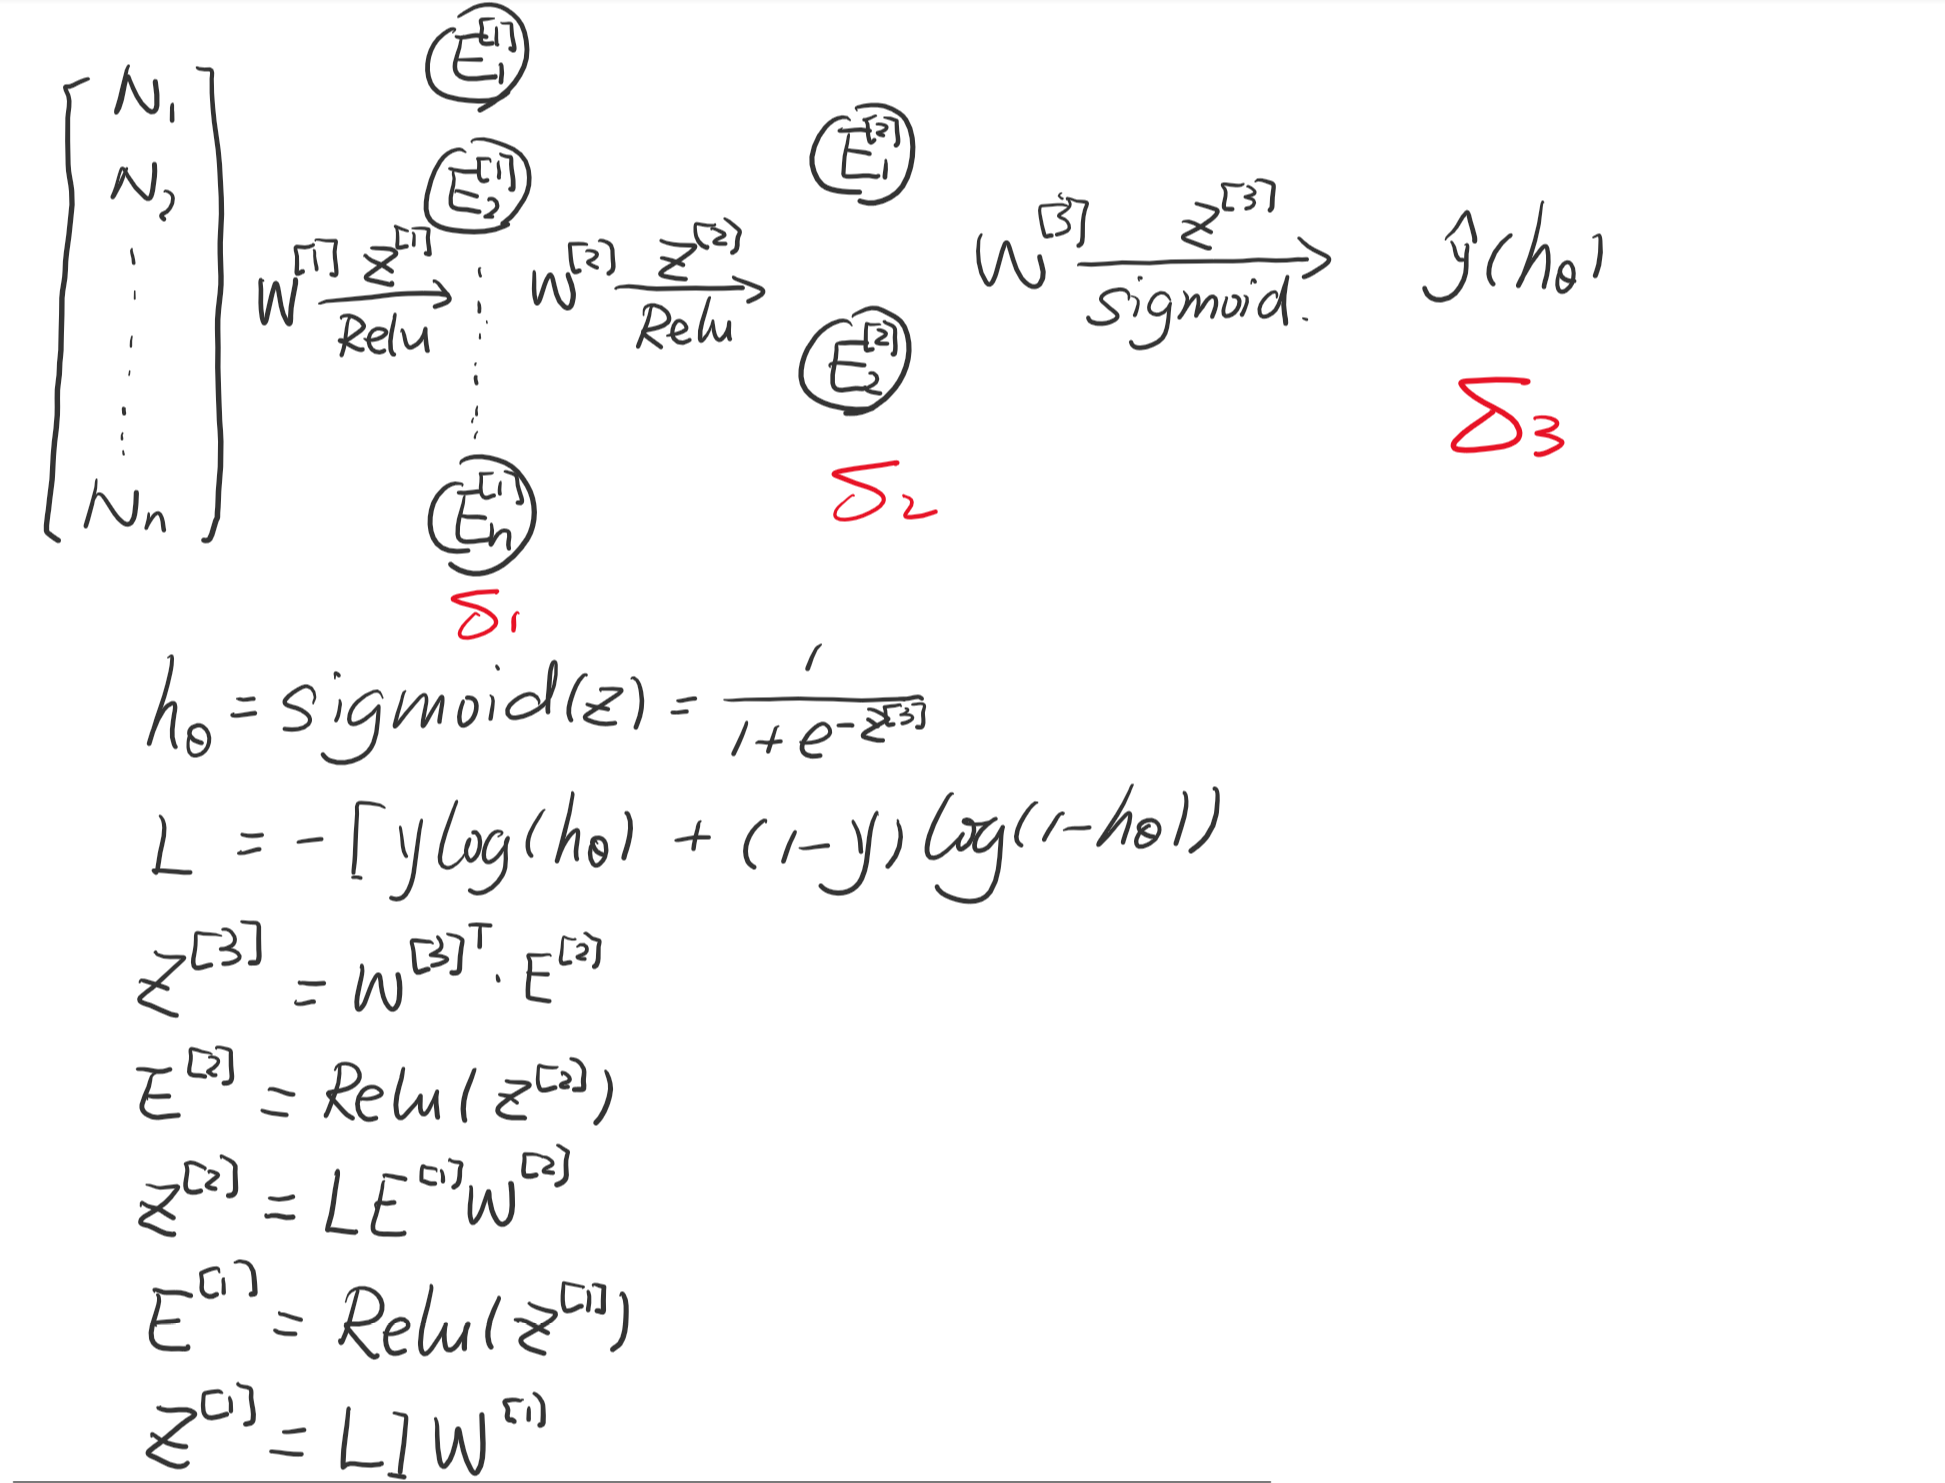 N₁
N₂
Nₙ
W^[1] Z^[1] Relu
E₁^[1]
E₂^[1]
Eₙ^[1]
δ₁
W^[2] Z^[2] Relu
E₁^[2]
E₂^[2]
δ₂
W^[3] Z^[3] sigmoid.
ŷ(hθ)
δ₃
hθ = sigmoid(z) = 1 / (1 + e^-z^[3])
L = - [y log(hθ) + (1-y) log(1-hθ))
Z^[3] = W^[3]ᵀ · E^[2]
E^[2] = Relu(z^[2])
Z^[2] = L E^[1] W^[2]
E^[1] = Relu(z^[1])
Z^[1] = L I W^[1]